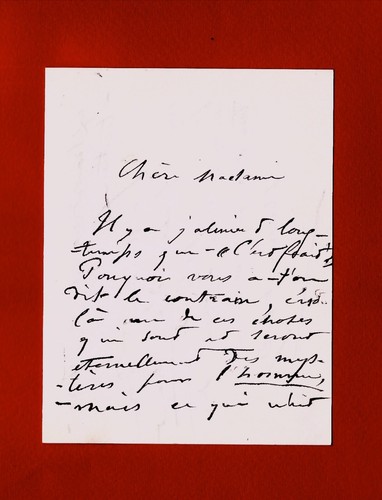 Chère Madame
Il y a
temps que « C'est fait »
Pourquoi vous a-t'on
dit le contraire, c'est
là une de ces choses
qui sont et seront
éternellement des mys-
-tères pour l'homme,
-mais ce qui